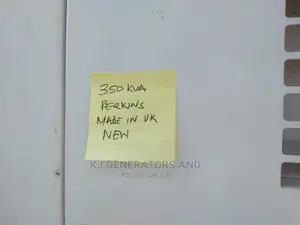 350 KVA
PERKINS
MADE IN UK
NEW
K.I GENERATORS AND